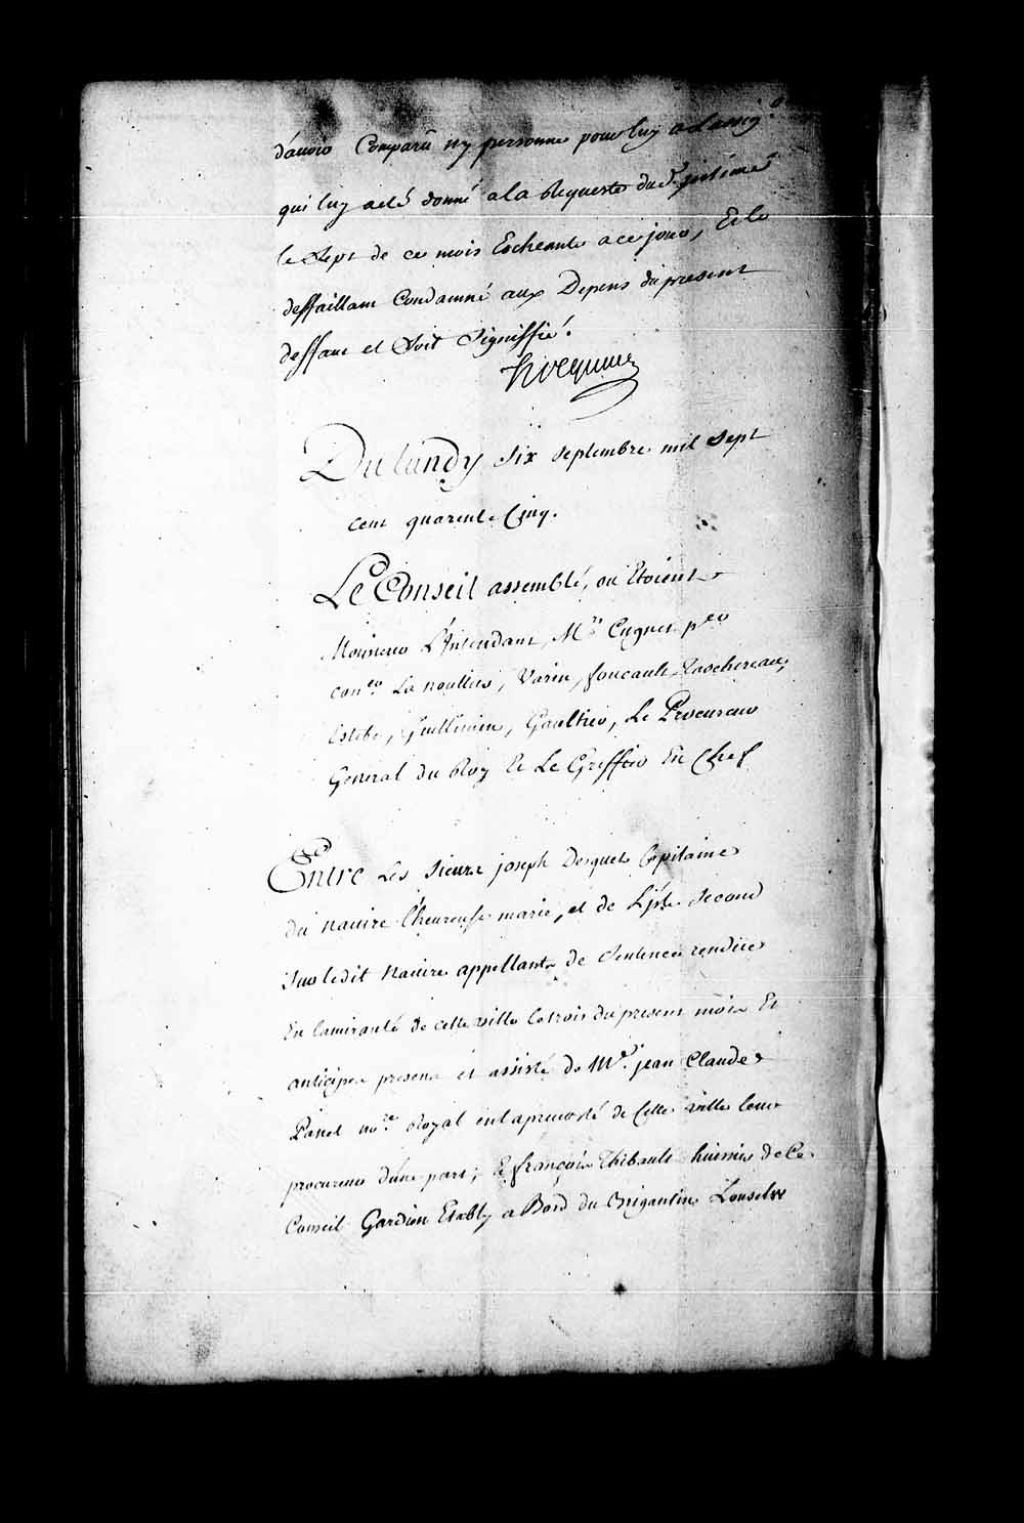 d'avoir Comparu ny personne pour luy a Lassig.on
qui luy a eté donné a la Requeste du d. s. intimé
le Sept de ce mois Echeante a ce jour, Et le
deffaillant Condamné aux Depens du present
deffaut et soit Signiffié.
hocquart
Du lundy six septembre mil sept
cent quarente Cinq.
Le Conseil assemblé, ou Etoient
Monsieur L'Intendant, Mrs. Cugnet per
con.er La noullier, Varin, foucault, Taschereau,
Estebe, Guillimin, Gaultier, Le Procureur
General du Roy Et Le Greffier En Chef
Entre Les Sieurs joseph Capitaine
du navire l'heureuse marie, et de second
sur ledit Navire appellants de Sentence rendüe
En lamirauté de cette ville le trois du present mois Et
anticipez present et assisté de Me. jean Claude
Panet no.re Royal en la prevosté de Cette ville leur
procureur d'une part; Et françois Thibault huissier de Ce
Conseil Gardien Etably a Bord du Brigantin